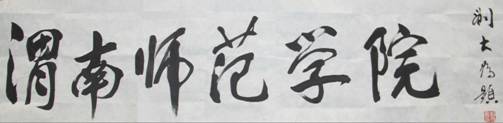 渭南师范学院
刘大为题